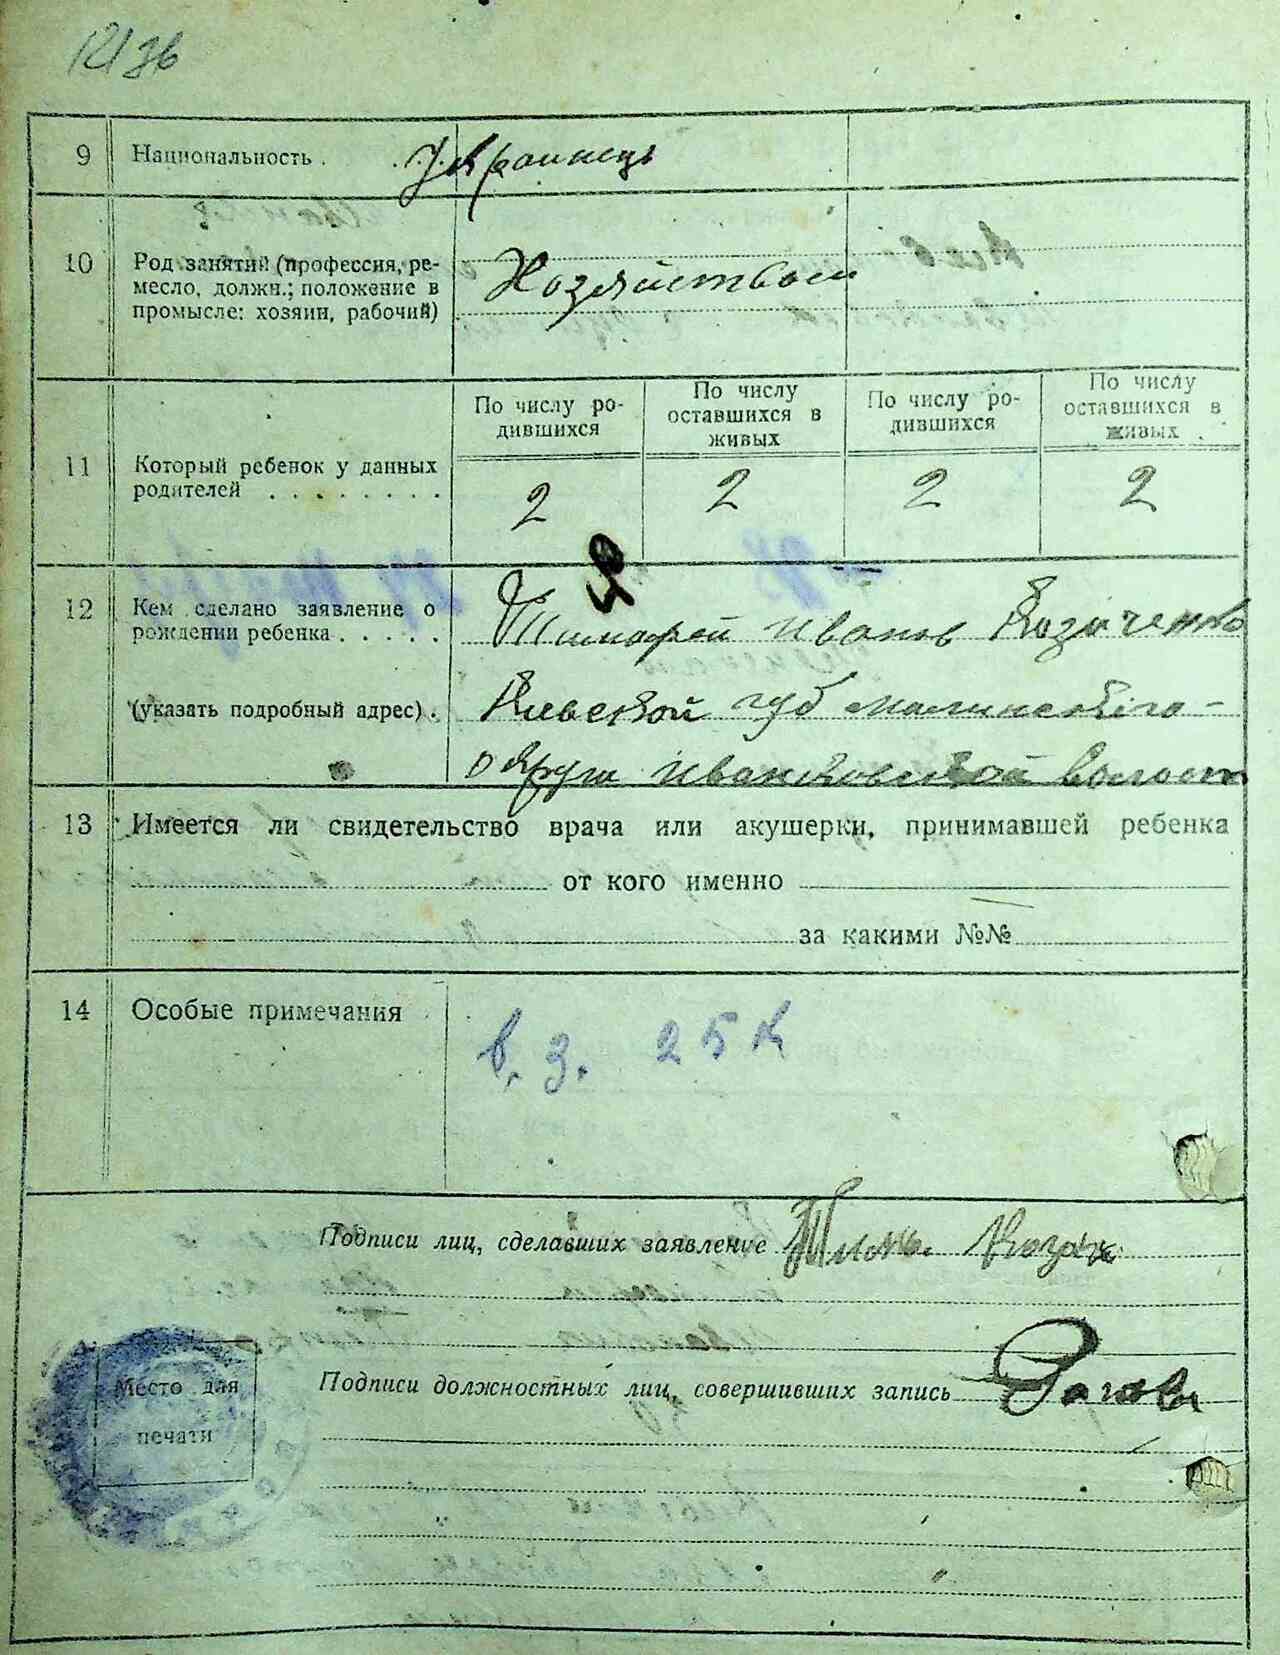 9 Национальность . . . Украинець
10 Род занятий (профессия, ре-
месло, должн.; положение в
промысле: хозяин, рабочий)
Хозяйством
По числу ро-
дившихся
По числу
оставшихся в
живых
По числу ро-
дившихся
По числу
оставшихся в
живых
11 Который ребенок у данных
родителей . . . . . . . .
2 2 2 2
12 Кем сделано заявление о
рождении ребенка . . . . .
Тимофей Иванов Козаченко
(указать подробный адрес) .
Киевской губ Малинского
округа Иванковской волости
13 Имеется ли свидетельство врача или акушерки, принимавшей ребенка
от кого именно
за какими №№
14 Особые примечания
в. з. 25 к
Подписи лиц, сделавших заявление
Подписи должностных лиц, совершивших запись
Место для
печати